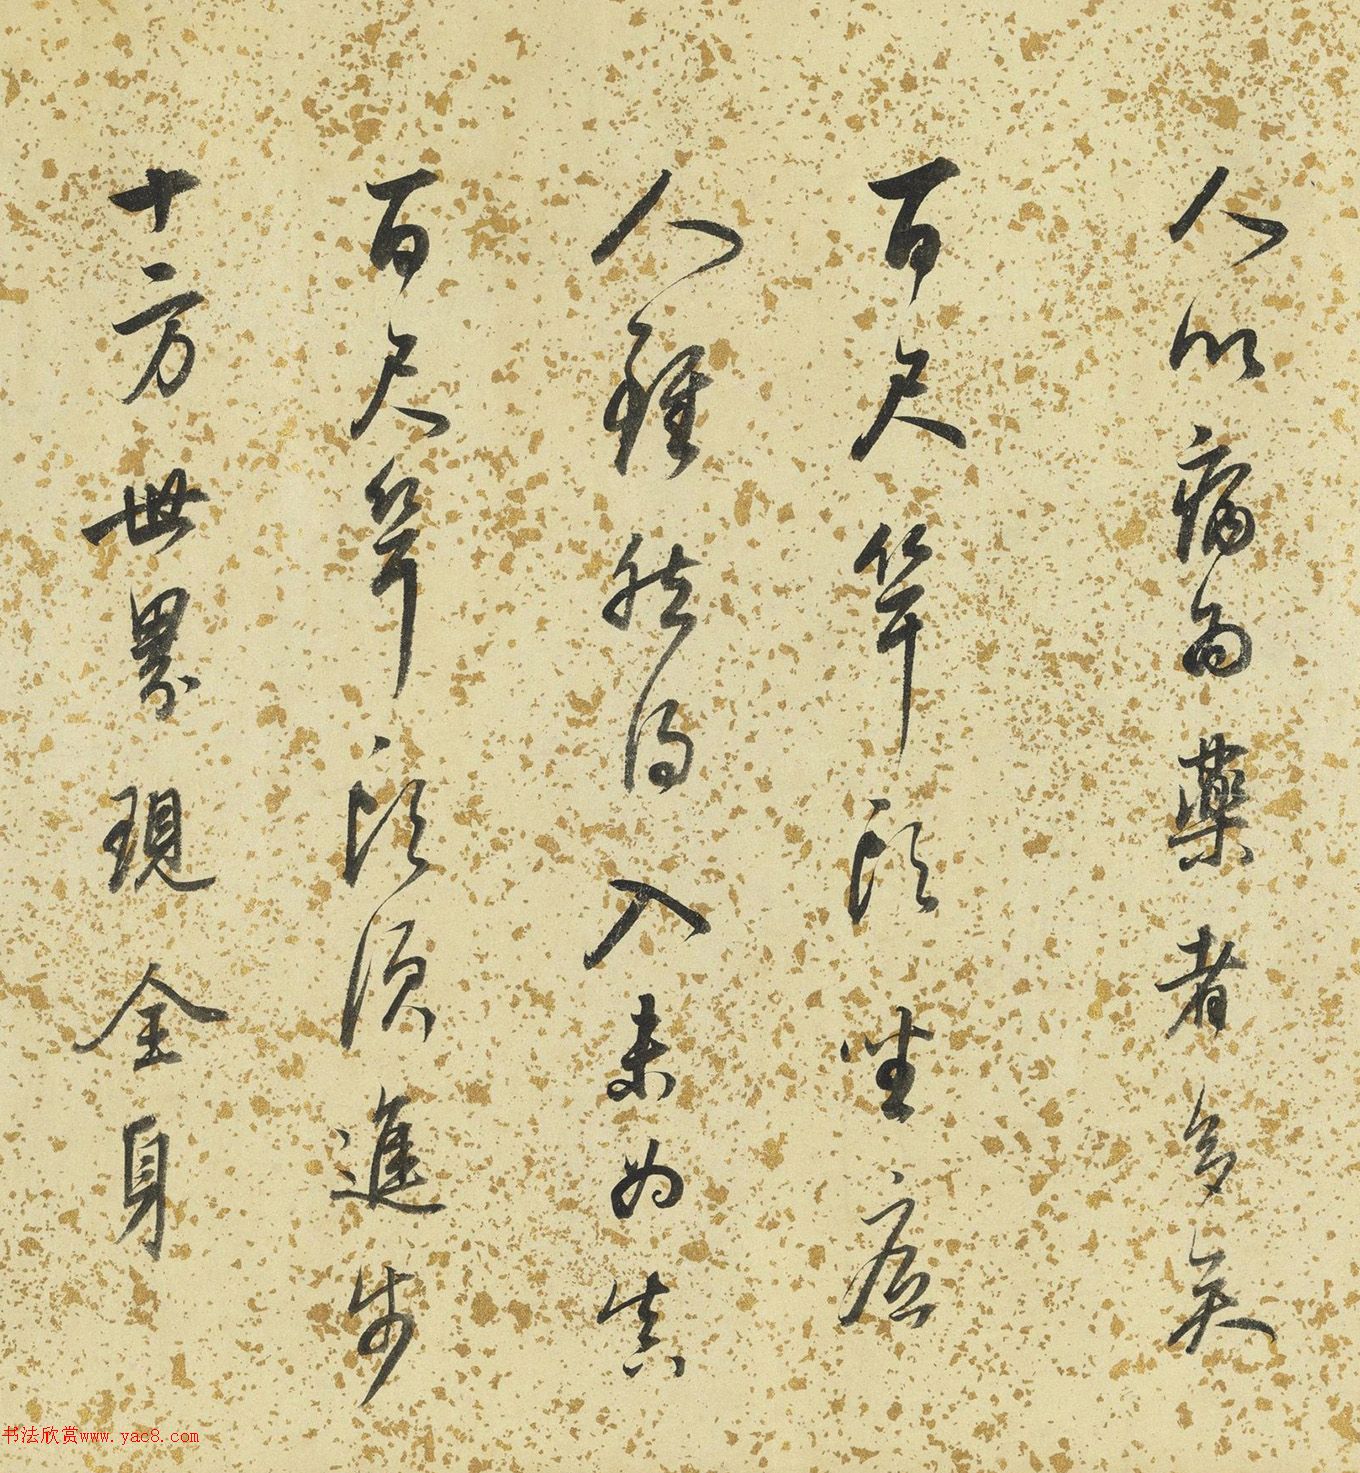 人以病为藥者多矣
百尺竿頭坐底
人雖然得入未為真
百尺竿頭須進步
十方世界現全身
书法欣赏www.yac8.com